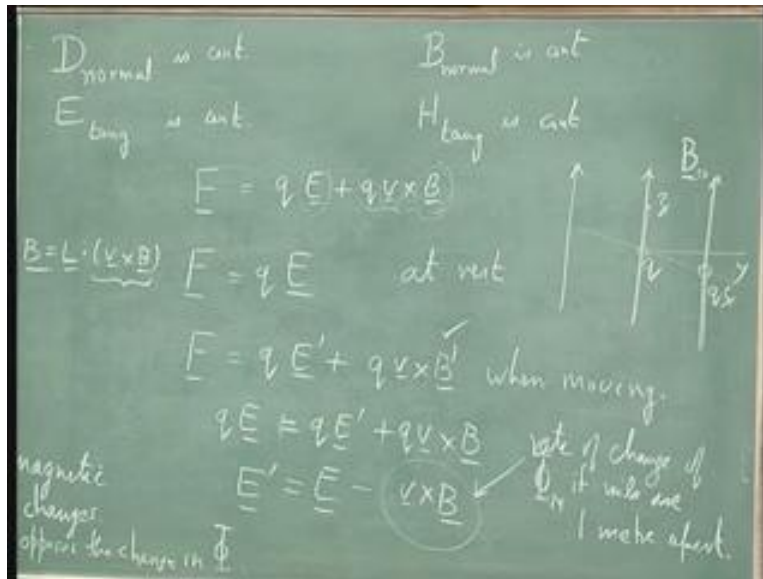 D normal is cont. B normal is cont
E tang is cont. H tang is cont
F = q E + q v × B
B = L · (v × B)
F = q E at rest
F = q E' + q v × B' when moving.
q E = q E' + q v × B
E' = E - v × B
rate of change of
Φ if rails are
1 metre apart.
magnetic
changes
oppose the change in Φ
B
z
y
q